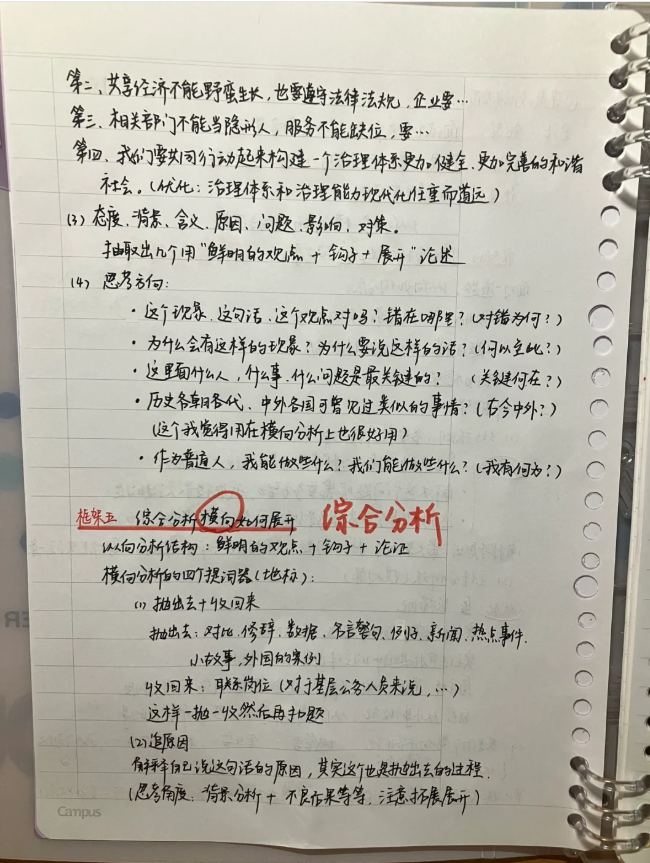 第二、共享经济不能野蛮生长，也要遵守法律法规，企业要…
第三、相关部门不能当隐形人，服务不能缺位，要…
第四、我们要共同行动起来构建一个治理体系更加健全、更加完善的和谐
社会。（优化：治理体系和治理能力现代化任重而道远）
(3) 态度、背景、含义、原因、问题、影响、对策。
抽取出几个用“鲜明的观点+钩子+展开”论述
(4) 思考方向：
·这个现象、这句话、这个观点对吗？错在哪里？（对错为何？）
·为什么会有这样的现象？为什么要说这样的话？（何以至此？）
·这里面什么人，什么事、什么问题是最关键的？（关键何在？）
·历史各朝各代、中外各国可曾见过类似的事情？（古今中外？）
（这个我觉得用在横向分析上也很好用）
·作为普通人，我能做些什么？我们能做些什么？（我有何为？）
框架五 综合分析横向如何展开 综合分析
纵向分析结构：鲜明的观点+钩子+论证
横向分析的四个提词器（地标）：
(1) 抛出去+收回来
抛出去：对比、修辞、数据、名言警句、例子、新闻、热点事件、
小故事，外国的案例
收回来：联系岗位（对于基层公务员来说，…）
这样一抛一收然后再扣题
(2) 追原因
自己说这句话的原因，其实这个也是抛出去的过程.
（思考角度：背景分析+不良后果等等，注意拓展展开）
Campus